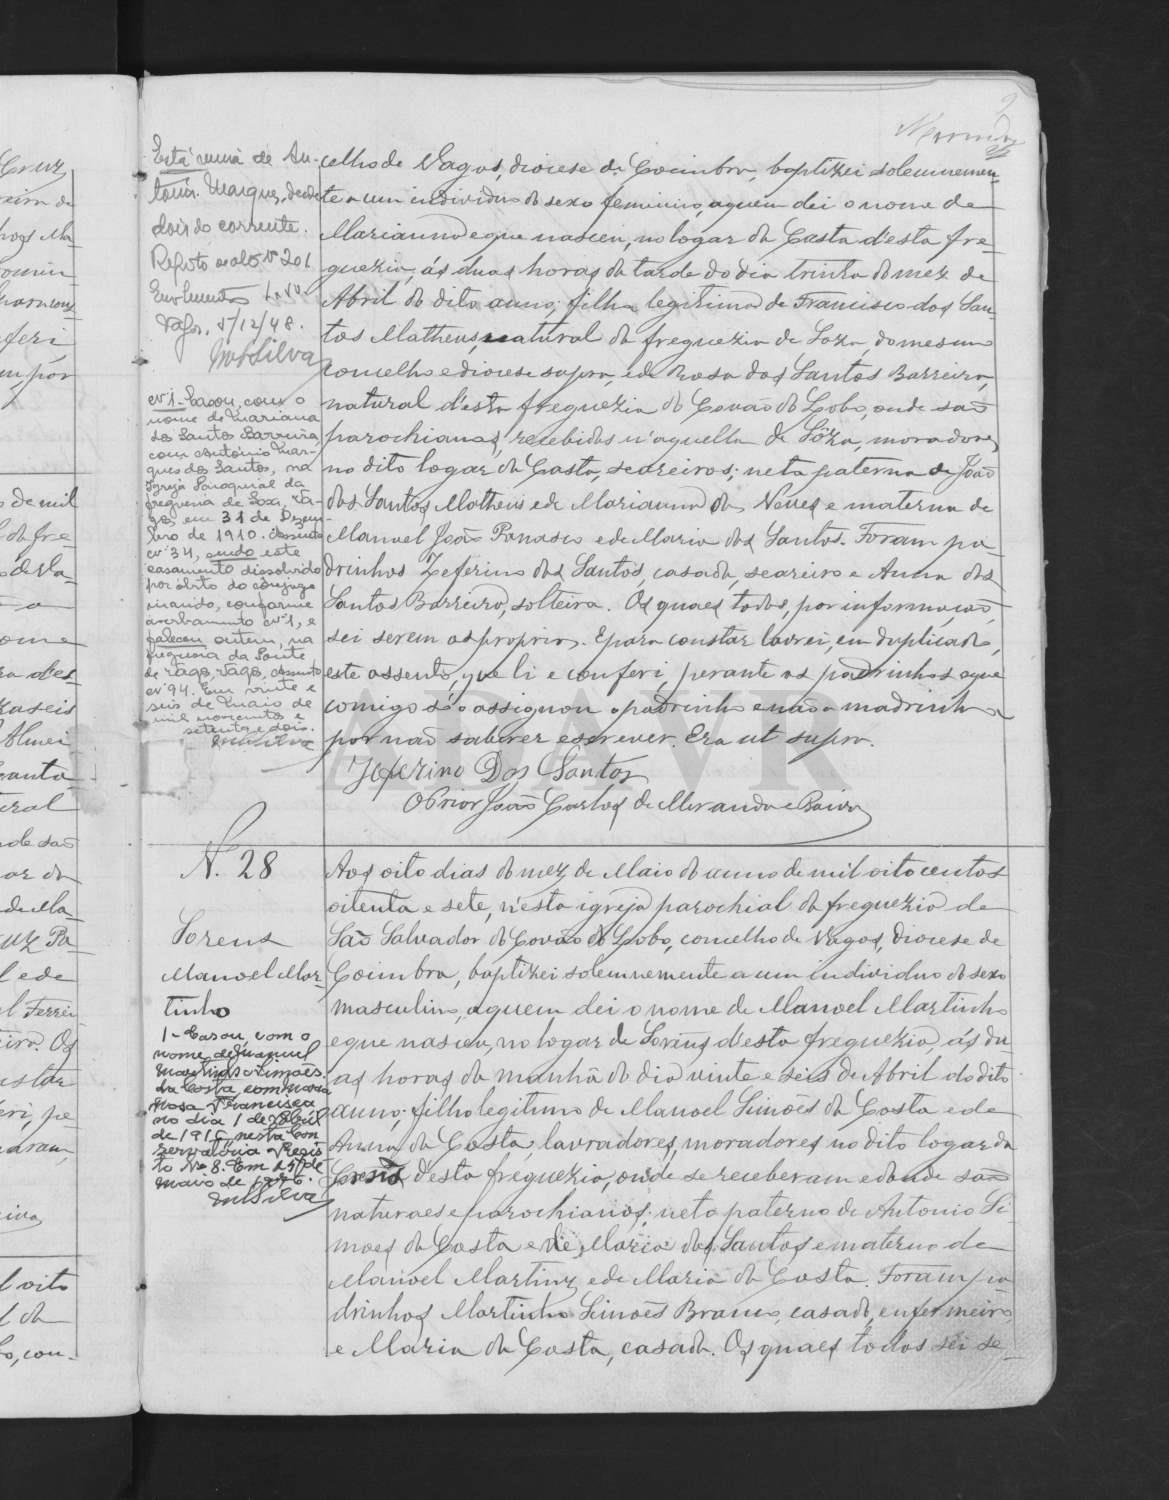 9
Está rubrica de An-
tónio Marques, desde
dois do corrente.
Vagos, 5/12/48.
MMSilva
Nº 1 - Casou, com o
nome de Mariana
dos Santos Barreira,
com António Mar-
ques dos Santos, na
Igreja Paroquial da
freguesia de Soza, Va-
gos, em 31 de Dezem-
bro de 1910. Assento
nº 34, sendo este
casamento dissolvido
por óbito do cônjuge
marido, conforme
averbamento nº 1, e
faleceu ontem, na
freguesia da Ponte
de Vagos, Vagos, assento
nº 94. Em vinte e
seis de Maio de
mil novecentos e
setenta e dois.
celho de Vagos, diocese de Coimbra, baptizei solemnemen-
te a um individuo do sexo feminino, a quem dei o nome de
Marianna e que nasceu, no logar da Gasta d'esta fre-
guezia, ás duas horas da tarde do dia trinta do mez de
Abril do dito anno, filha legitima de Francisco dos San-
tos Matheus, natural da freguezia de Soza, do mesmo
concelho e diocese supra, e de Rosa dos Santos Barreira,
natural d'esta freguezia do Covão do Lobo, onde são
parochianos, recebidos n'aquella de Sôza, moradores
no dito logar da Gasta, seareiros; neta paterna de João
dos Santos Matheus e de Marianna das Neves e materna de
Manuel João Panasco e de Maria dos Santos. Foram pa-
drinhos Zeferino dos Santos, casado, seareiro e Anna dos
Santos Barreiro, solteira. Os quaes todos, por informação,
sei serem os proprios. E para constar lavrei, em duplicado,
este assento, que li e conferi, perante os padrinhos e que
comigo só o assignou o padrinho e não a madrinha
por não saberer escrever. Era ut supra.
Zeferino Dos Santos
O Prior João Carlos de Miranda e Paiva
N. 28
Sorens
Manoel Mar-
tinho
1 - Casou, com o
nome de Manuel
Martinho Simões
da Costa, com Maria
Rosa Francisca
no dia 1 de Abril
de 1916, nesta Con
servatória - Regis
to Nº 8. Em 15 de
Maio de 1976.
MMSilva
Aos oito dias do mez de Maio do anno de mil oito centos
oitenta e sete, n'esta igreja parochial da freguezia de
São Salvador do Covão do Lobo, concelho de Vagos, diocese de
Coimbra, baptizei solemnemente a um individuo do sexo
masculino, a quem dei o nome de Manoel Martinho
e que nasceu, no logar de Sorens d'esta freguezia, ás du-
as horas da manhã do dia vinte e seis de Abril do dito
anno; filho legitimo de Manoel Simões da Costa e de
Anna da Costa, lavradores, moradores no dito logar de
d'esta freguezia, onde se receberam e donde são
naturaes e parochianos; neto paterno de Antonio Si-
mões da Costa e de Maria dos Santos e materno de
Manoel Martins e de Maria da Costa. Foram pa-
drinhos Martinho Simões Branco, casado, enfermeiro
e Maria da Costa, casada. Os quaes todos sei se-
ADAVR